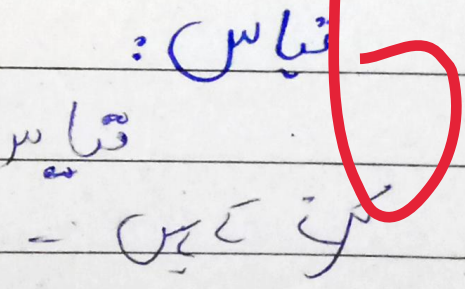 قیاس :
قیاس
کرنے کے ہیں ۔